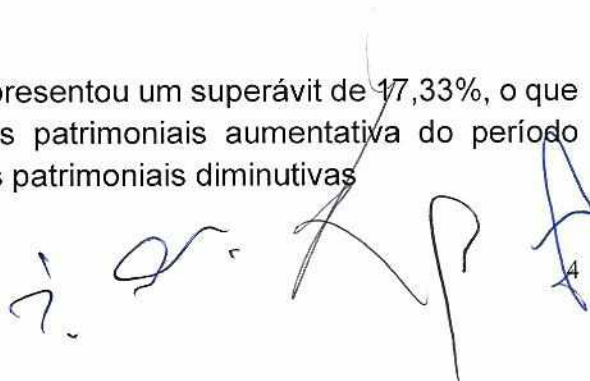 presentou um superávit de 17,33%, o que
s patrimoniais aumentativa do período
s patrimoniais diminutivas
4